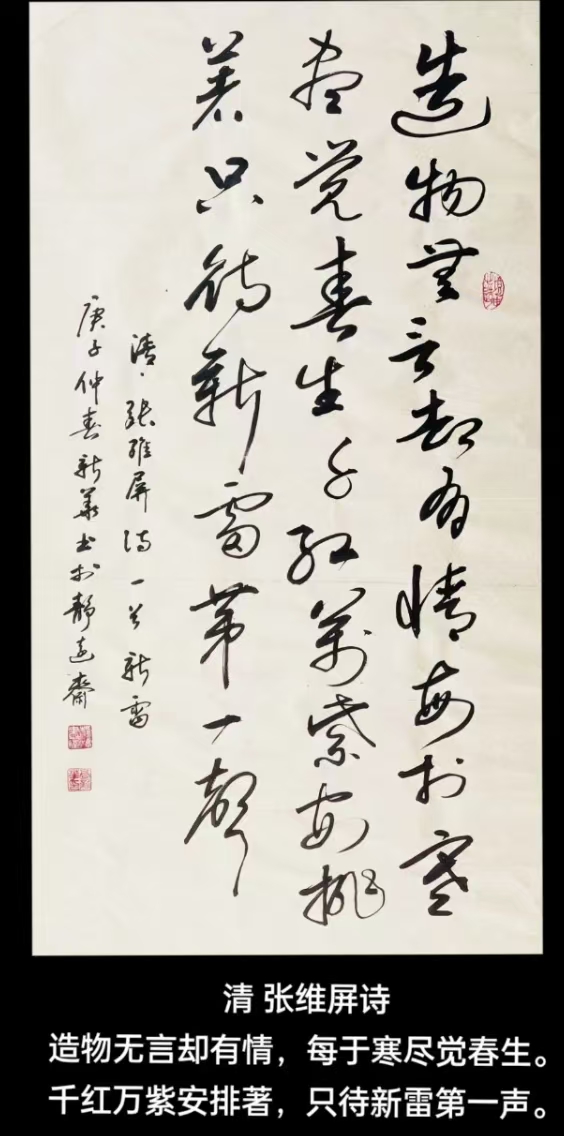 造物無言却有情每於寒
盡觉春生千红萬紫安排
著只待新雷第一聲
清·張維屏詩一首新雷
庚子仲春新華书於静远齋
清 张维屏诗
造物无言却有情，每于寒尽觉春生。
千红万紫安排著，只待新雷第一声。